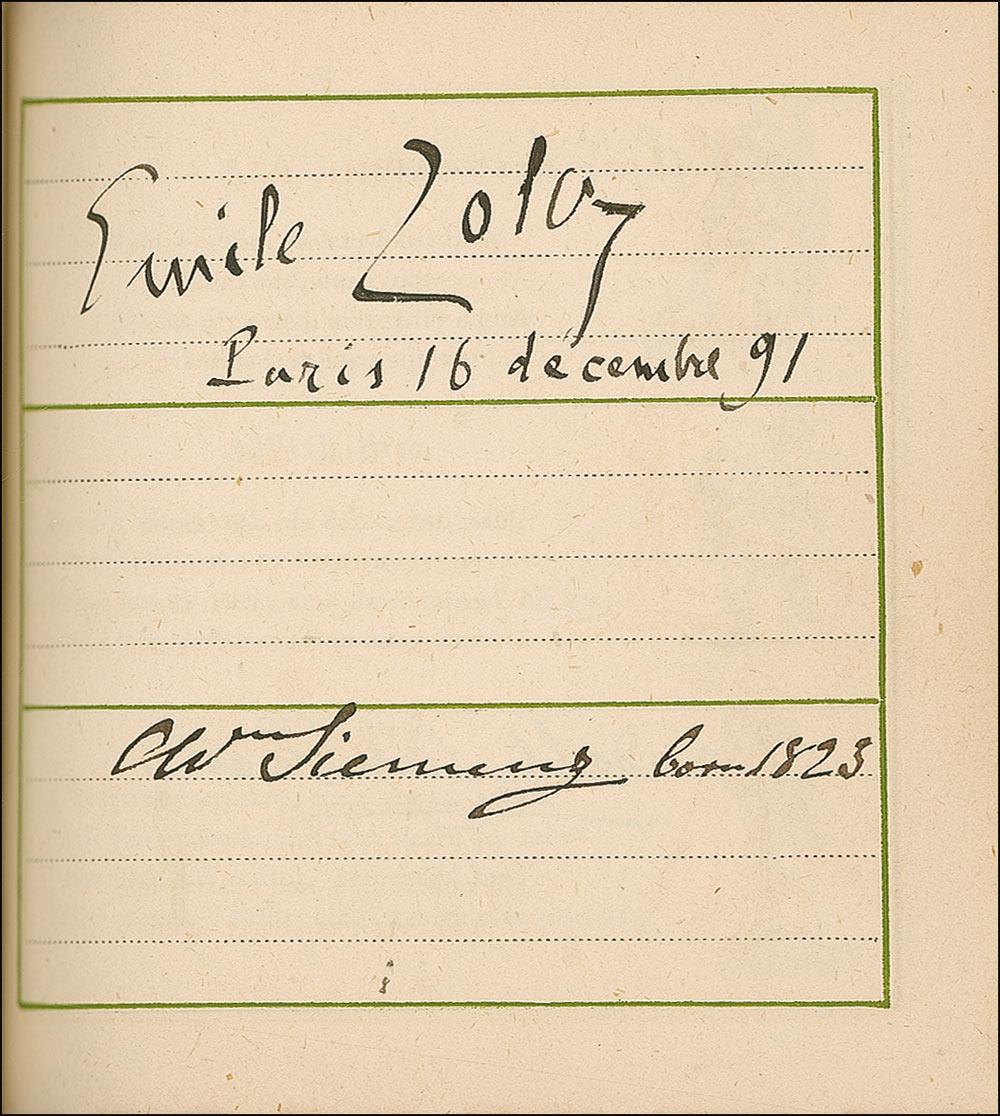 Emile Zola
Paris 16 décembre 91
CWm Siemens born 1823